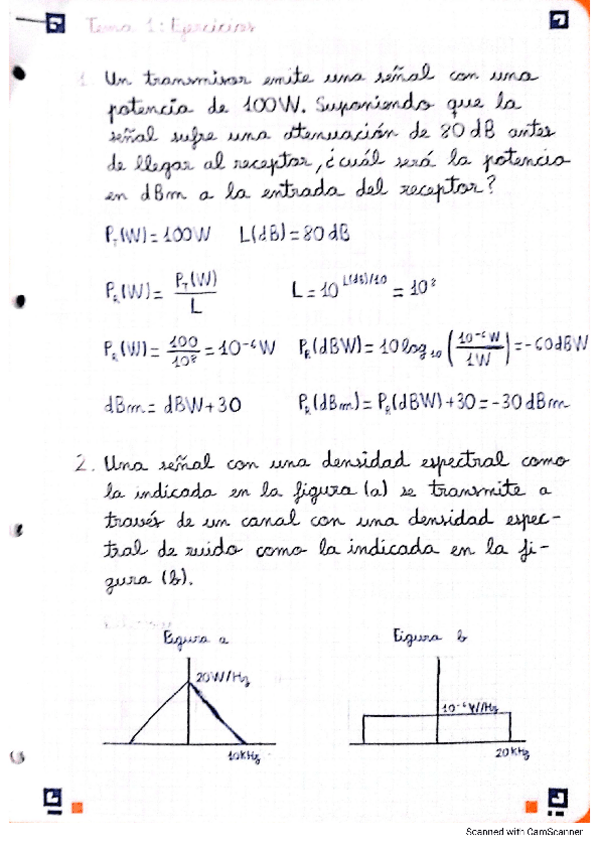 Tema 1: Ejercicios
1. Un transmisor emite una señal con una
potencia de 100W. Suponiendo que la
señal sufre una atenuación de 80 dB antes
de llegar al receptor, ¿cuál será la potencia
en dBm a la entrada del receptor?
P_T(W) = 100W L(dB) = 80 dB
P_R(W) = P_T(W) / L L = 10^(L(dB)/10) = 10^8
P_R(W) = 100 / 10^8 = 10^-6 W P_R(dBW) = 10 log_10 (10^-6 W / 1W) = -60dBW
dBm = dBW + 30 P_R(dBm) = P_R(dBW) + 30 = -30 dBm
2. Una señal con una densidad espectral como
la indicada en la figura (a) se transmite a
través de un canal con una densidad espec-
tral de ruido como la indicada en la fi-
gura (b).
Figura a Figura b
20W/Hz
10^-6 W/Hz
10kHz 20kHz
Scanned with CamScanner